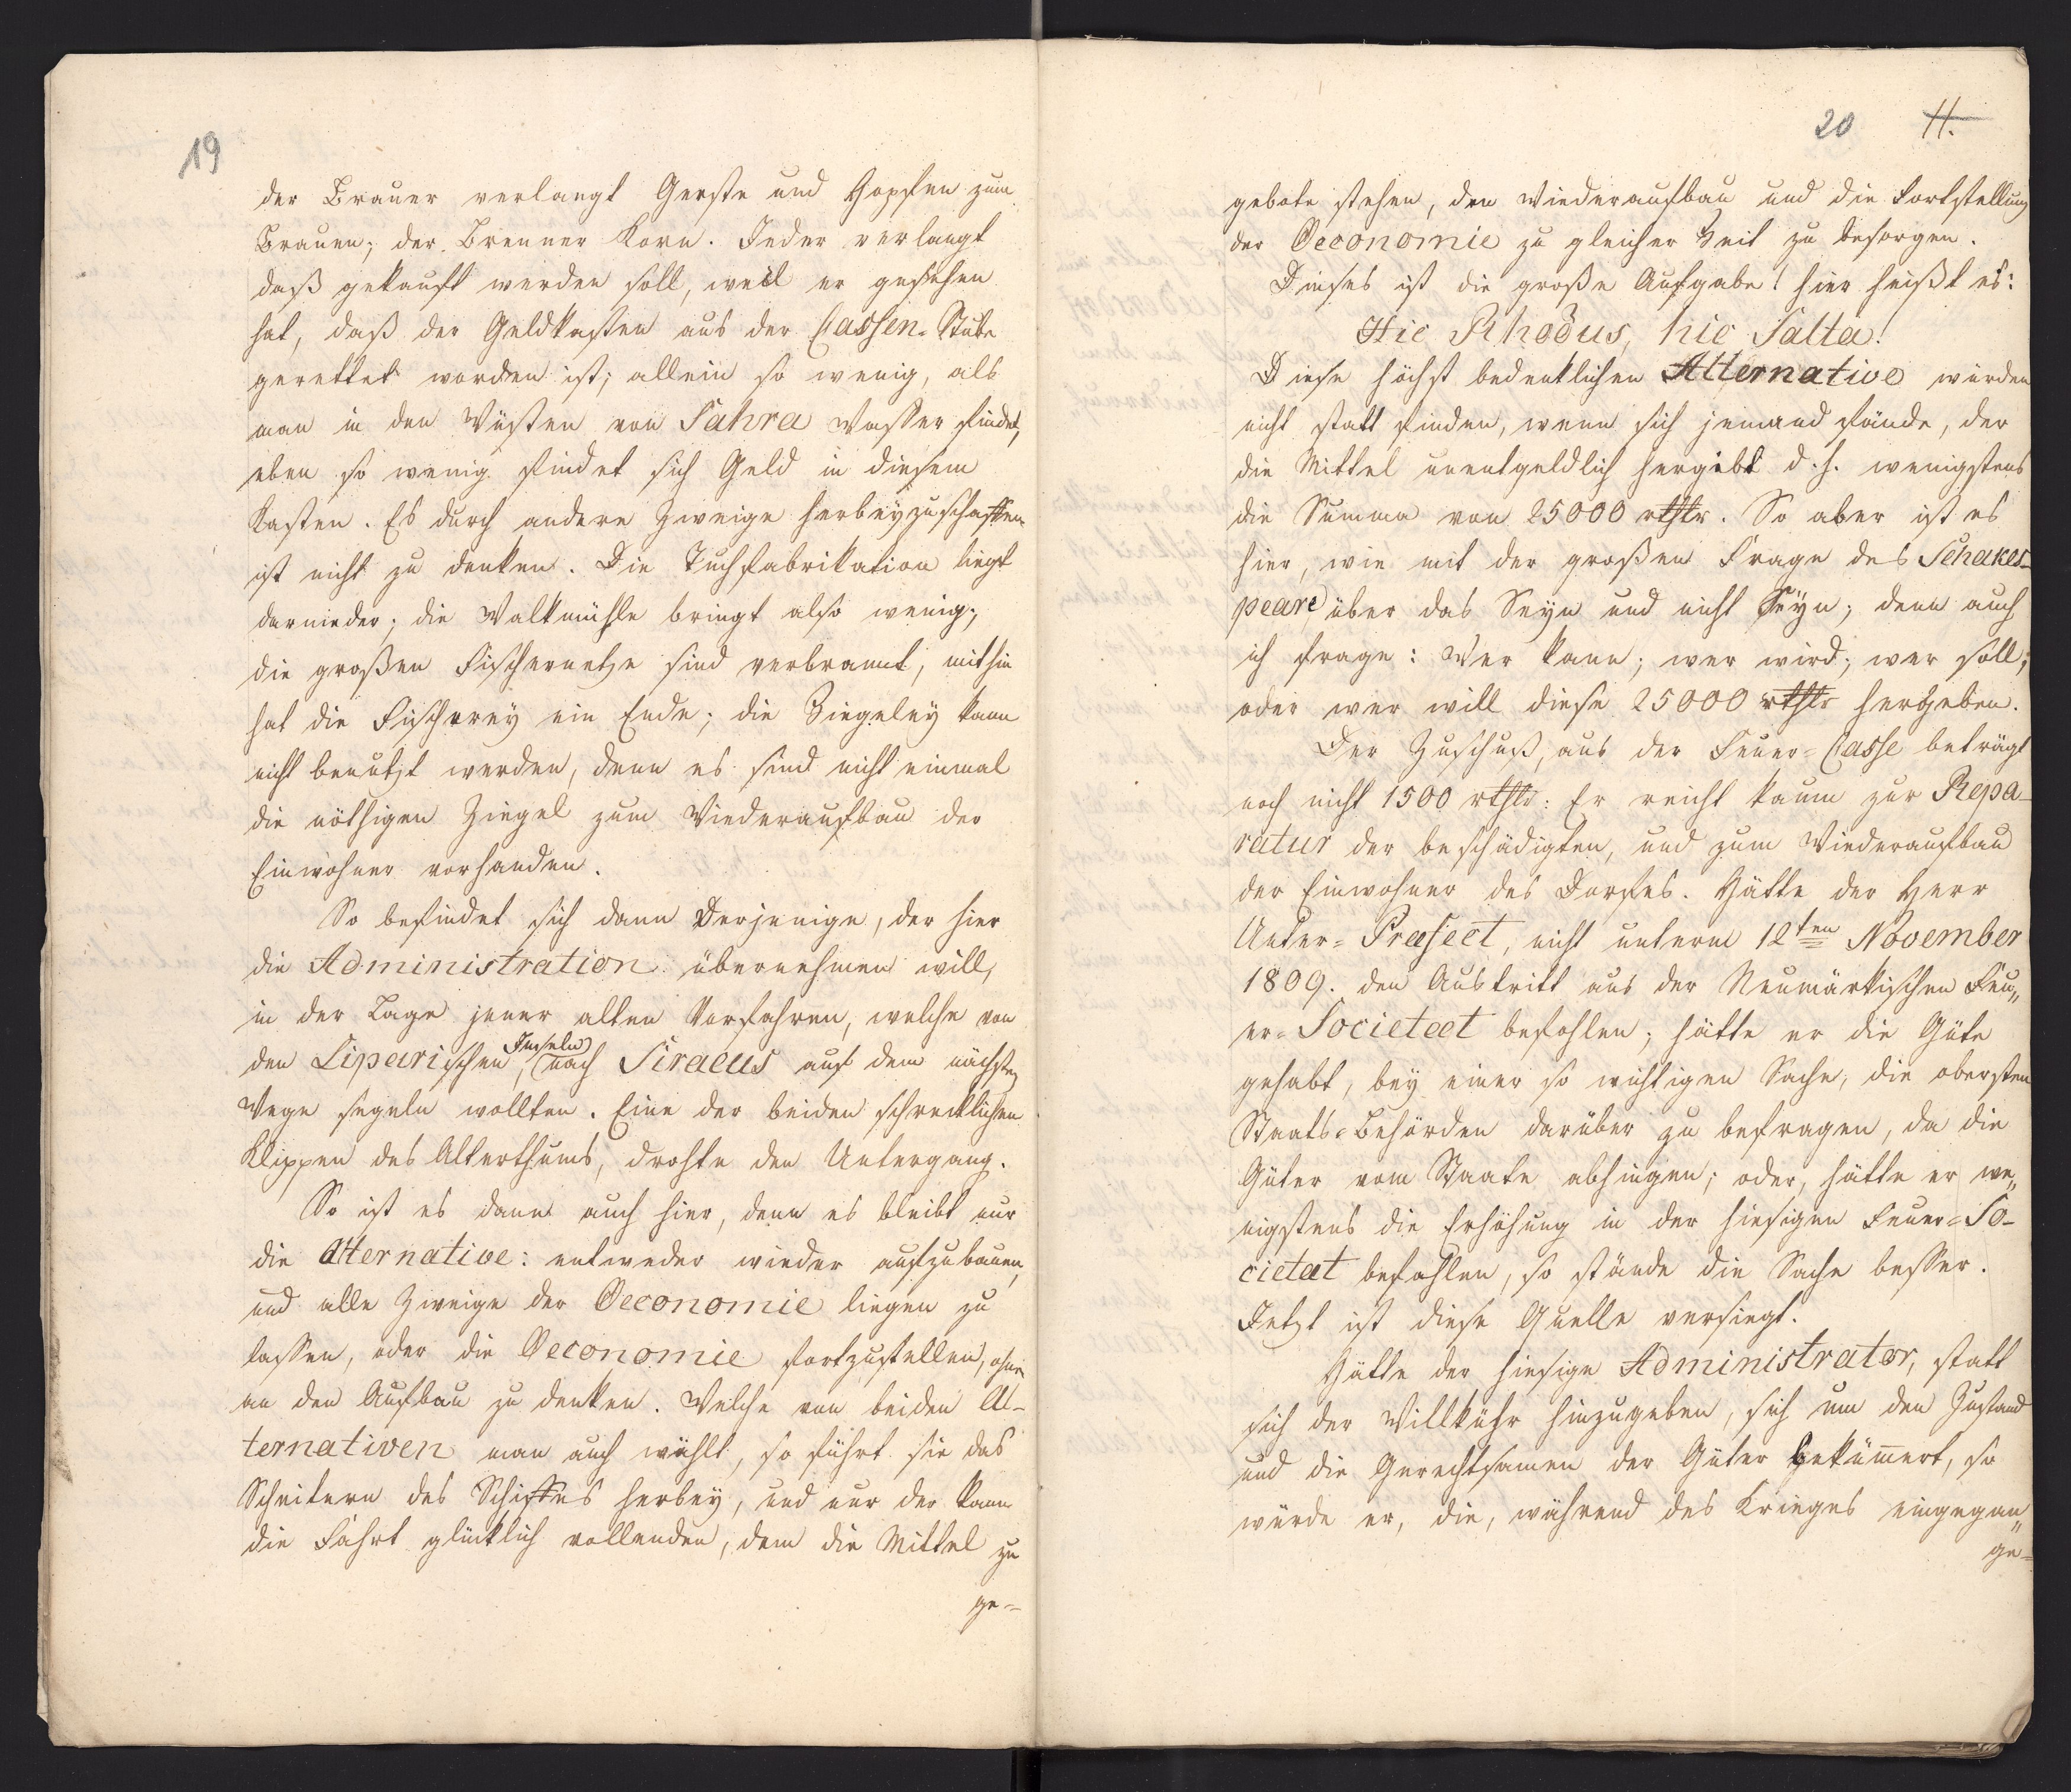 19
der Brauer verlangt Gerste und Hopfen zum
Brauen; der Brenner Korn. Jeder verlangt
daß gekauft werden soll, weil er gesehen
hat, daß der Geldkasten aus der Cassen-Stube
gerettet worden ist; allein so wenig, als
man in den Wüsten von Sahra Wasser findet,
eben so wenig findet sich Geld in diesem
Kasten. Es durch andere Zweige herbeyzuschaffen
ist nicht zu denken. Die Tuchfabrikation liegt
darnieder; die Walkmühle bringt also wenig;
die großen Fischernetze sind verbrannt, mithin
hat die Fischerey ein Ende; die Ziegeley kann
nicht benutzt werden, denn es sind nicht einmal
die nöthigen Ziegel zum Wiederaufbau der
Einwohner vorhanden.
So befindet sich dann Derjenige, der hier
die Administration übernehmen will,
in der Lage jener alten Vorfahren, welche von
den Liparischen, Inseln nach Siracus auf dem nächsten
Wege segeln wollten. Eine der beiden schrecklichen
Klippen des Alterthums, drohte den Untergang.
So ist es dann auch hier, denn es bleibt nur
die Alternative: entweder wieder aufzubauen,
und alle Zweige der Oeconomie liegen zu
lassen, oder die Oeconomie fortzustellen, ohne
an den Aufbau zu denken. Welche von beiden Al-
ternativen man auch wählt, so führt sie das
Scheitern des Schiffes herbey, und nur der kann
die Fahrt glücklich vollenden, dem die Mittel zu
ge-
20 11.
gebote stehen, den Wiederaufbau und die Fortstellung
der Oeconomie zu gleicher Zeit zu besorgen.
Dieses ist die große Aufgabe! hier heißt es:
Hic Rhodus, hic Salta!
Diese höchst bedenklichen Alternative würden
nicht statt finden, wenn sich jemand fände, der
die Mittel unentgeldlich hergibt d. h. wenigstens
die Summa von 25000 rthlr. So aber ist es
hier, wie mit der großen Frage des Schakes-
peare über das Seyn und nicht Seyn; denn auch
ich frage: Wer kann; wer wird; wer soll;
oder wer will diese 25000 rthlr hergeben.
Der Zuschuß, aus der Feuer-Casse beträgt
noch nicht 1500 rthlr: Er reicht kaum zur Repa-
ratur der beschädigten, und zum Wiederaufbau
der Einwohner des Dorfes. Hätte der Herr
Unter-Præfect, nicht unterm 12ten November
1809. den Austritt aus der Neumärkischen Feu„
er-Societæt befohlen; hätte er die Güte
gehabt, bey einer so wichtigen Sache, die obersten
Staats-Behörden darüber zu befragen, da die
Güter vom Staate abhingen; oder, hätte er we„
nigstens die Erhöhung in der hiesigen Feuer-So-
cietæt befohlen, so stände die Sache besser.
Jetzt ist diese Quelle versiegt.
Hätte der hiesige Administrator, statt
sich der Willkühr hinzugeben, sich um den Zustand
und die Gerechtsamen der Güter bekümert, so
würde er, die, während des Krieges eingegan„
ge-